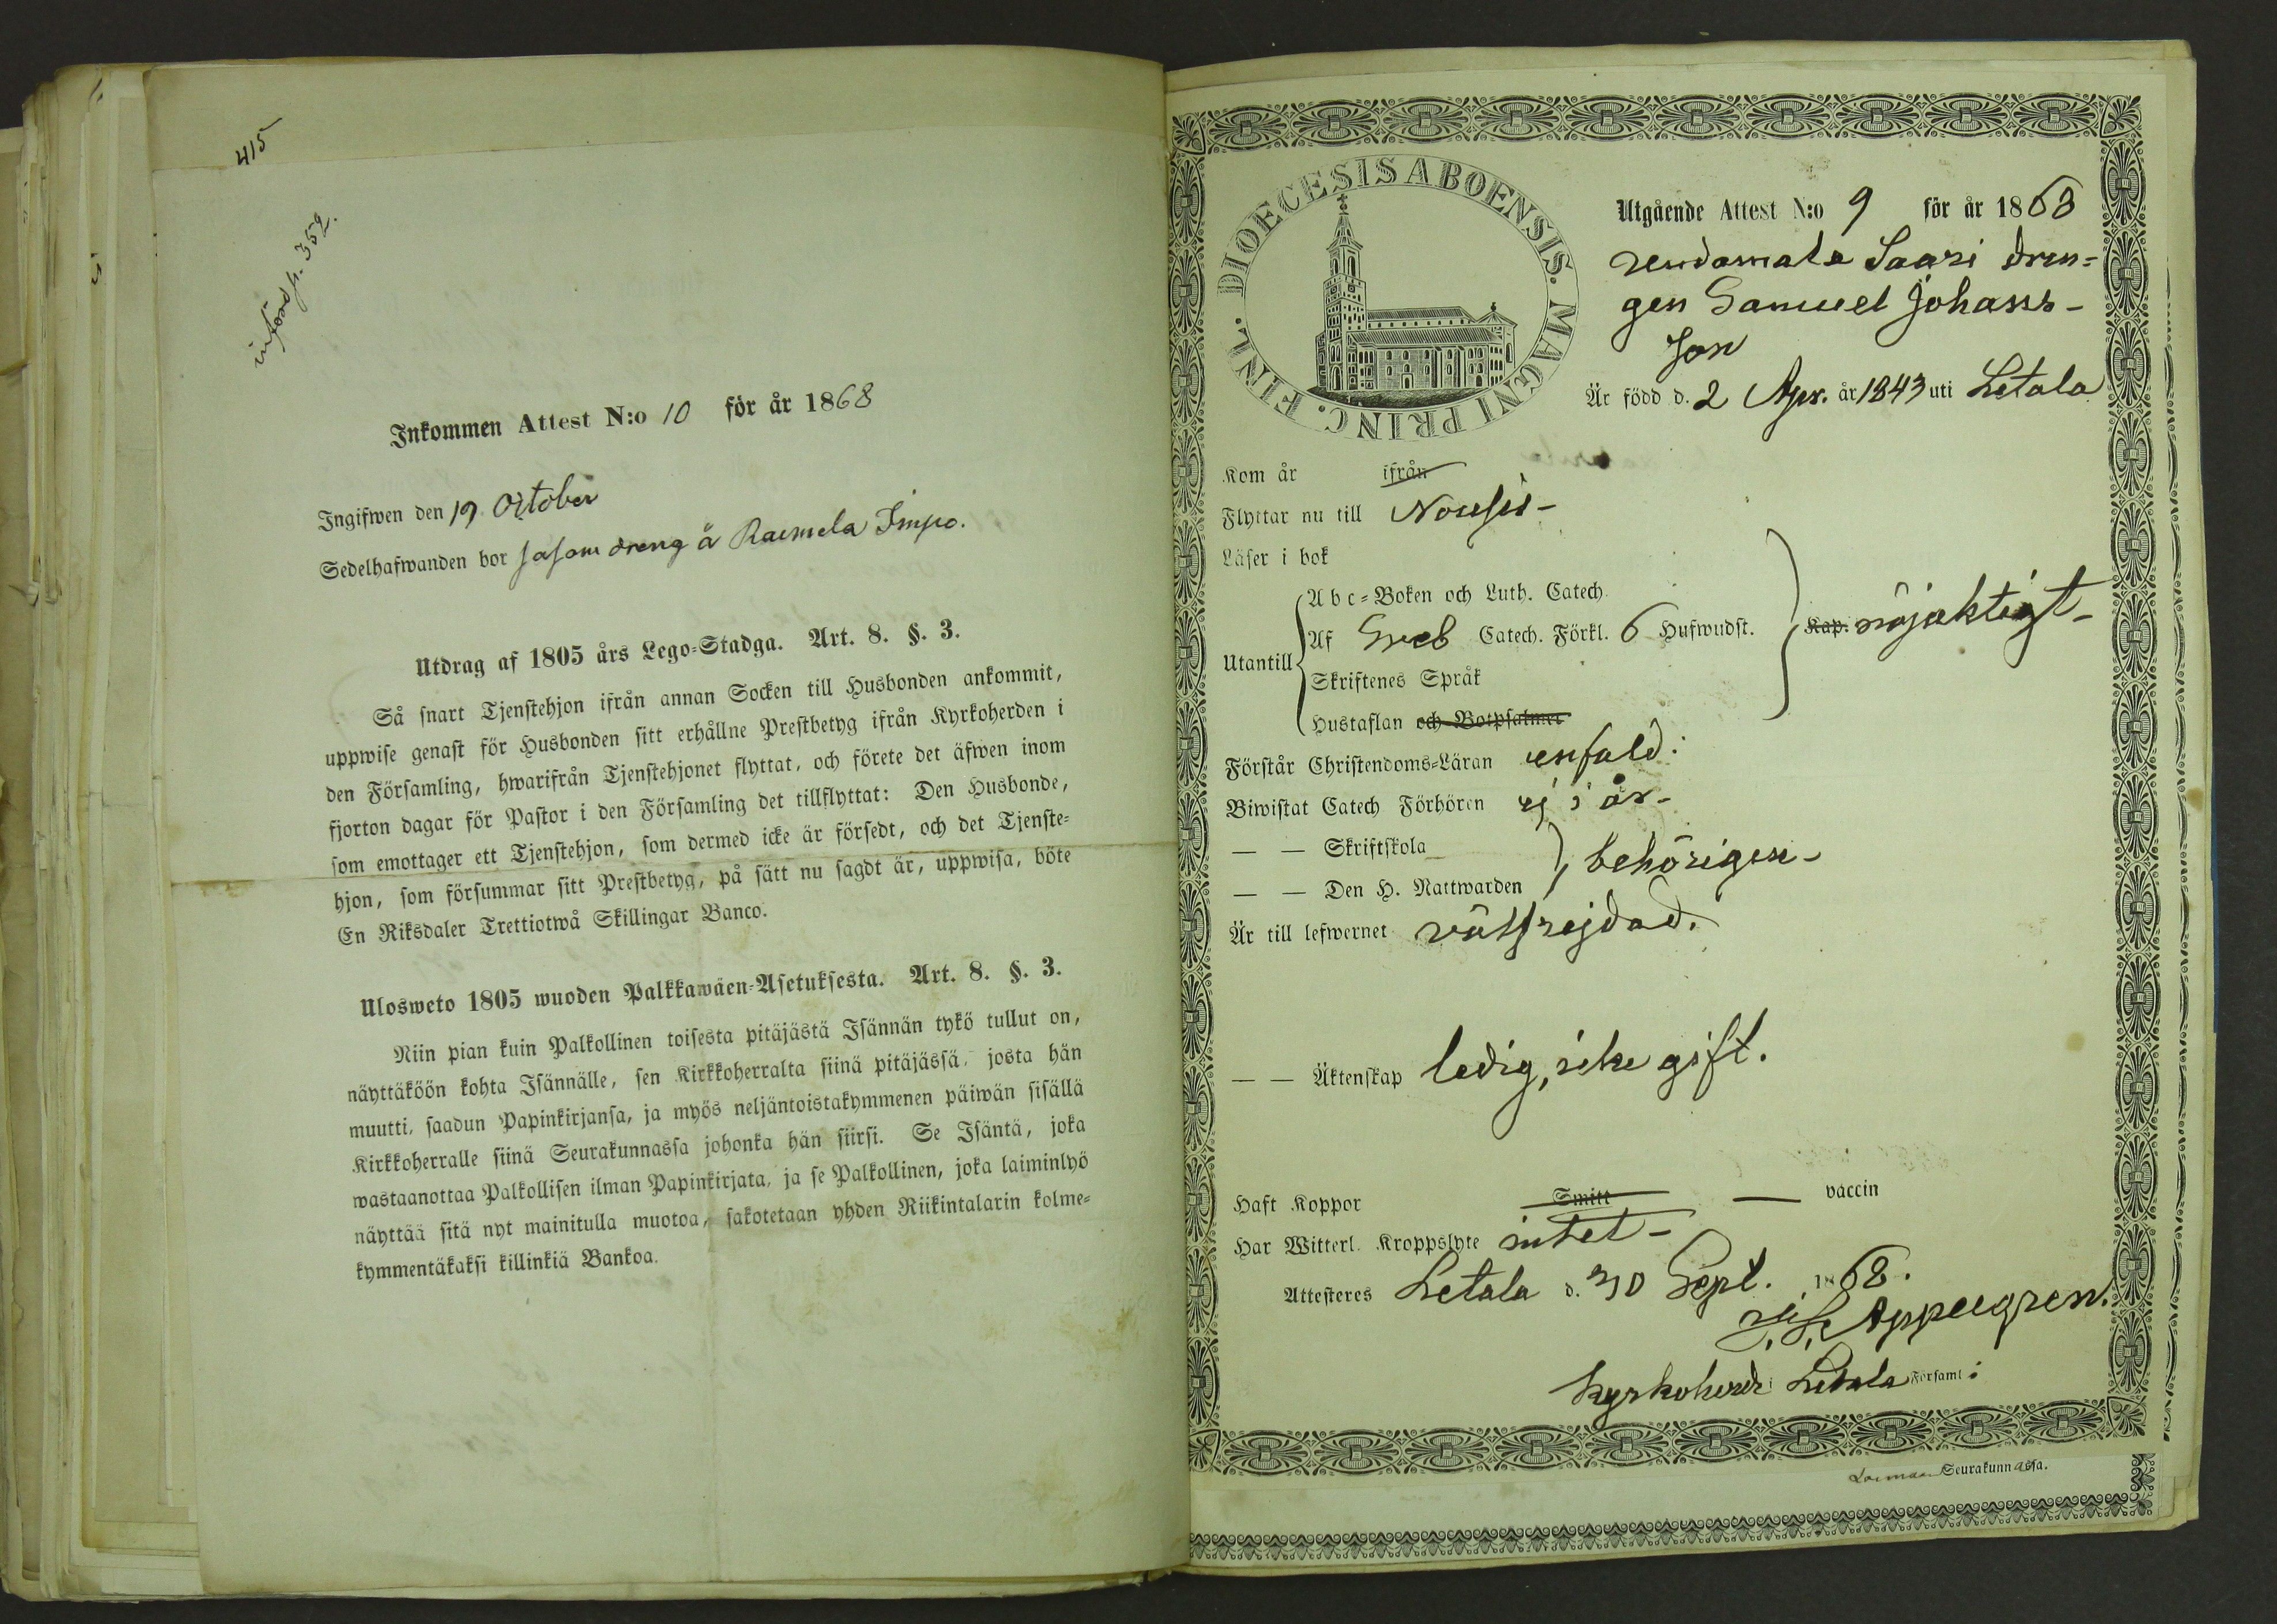 415
införd p. 352.
Inkommen Attest N:o 10 för år 1868
Ingifwen den 19 October
Sedelhafwanden bor såsom dreng å Raemela Impo.
Utdrag af 1805 års Lego-Stadga. Art. 8. §. 3.
Så snart Tjenstehjon ifrån annan Socken till Husbonden ankommit,
uppwise genast för Husbonden sitt erhållne Prestbetyg ifrån Kyrkoherden i
den Församling, hwarifrån Tjenstehjonet flyttat, och förete det äfwen inom
fjorton dagar för Pastor i den Församling det tillflyttat: Den Husbonde,
som emottager ett Tjenstehjon, som dermed icke är försedt, och det Tjenste-
hjon, som försummar sitt Prestbetyg, på sätt nu sagdt är, uppwisa, böte
En Riksdaler Trettiotwå Skillingar Banco.
Ulosweto 1805 wuoden Palkkawäen-Asetuksesta. Art. 8. §. 3.
Niin pian kuin Palkollinen toisesta pitäjästä Isännän tykö tullut on,
näyttäköön kohta Isännälle, sen Kirkkoherralta siinä pitäjässä, josta hän
muutti, saadun Papinkirjansa, ja myös neljäntoistakymmenen päiwän sisällä
Kirkkoherralle siinä Seurakunnassa johonka hän siirsi. Se Isäntä, joka
wastaanottaa Palkollisen ilman Papinkirjata, ja se Palkollinen, joka laiminlyö
näyttää sitä nyt mainitulla muotoa, sakotetaan yhden Riikintalarin kolme-
kymmentäkaksi killinkiä Bankoa.
DIOECESIS ABOENSIS. MAGNI PRINC. FINL.
Utgående Attest N:o 9 för år 1868
Saari dren-
gen Samuel Johans-
son
Är född d. 2 Apr. år 1843 uti Letala
Kom år ifrån
Flyttar nu till Nousis-
Läser i bok
Utantill
Abc-Boken och Luth. Catech.
Af Sveb Catech. Förkl. 6 Hufwudst.
Skriftenes Språk
Hustaflan och Botpsalmer
Kap. nöjaktigt-
Förstår Christendoms-Läran enfald:
Biwistat Catech Förhören ej i år-
— — Skriftskola
— — Den H. Nattwarden
behörigen-
Är till lefwernet välfrejdad.
— — Äktenskap ledig, icke gift.
Haft Koppor Smitt — vaccin
Har Witterl. Kroppslyte intet-
Attesteres Letala d. 30 Sept. 1868.
Appelgren.
Kyrkoherde i Letala Församl:
Loimaan Seurakunnassa.